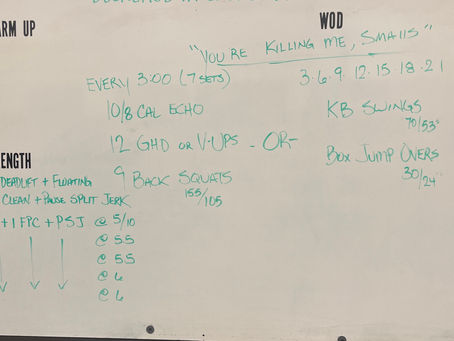 ARM UP
WOD
"YOU'RE KILLING ME, SMALLS"
EVERY 3:00 (7 SETS)
10/8 CAL ECHO
12 GHD OR V-UPS
9 BACK SQUATS
155/105
-OR-
3.6.9.12.15.18.21
KB SWINGS
70/53#
BOX JUMP OVERS
30/24"
ENGTH
DEADLIFT + FLOATING
CLEAN + PAUSE SPLIT JERK
+ 1 FPC + PSJ @ 5/10
@ 5.5
@ 5.5
@ 6
@ 6